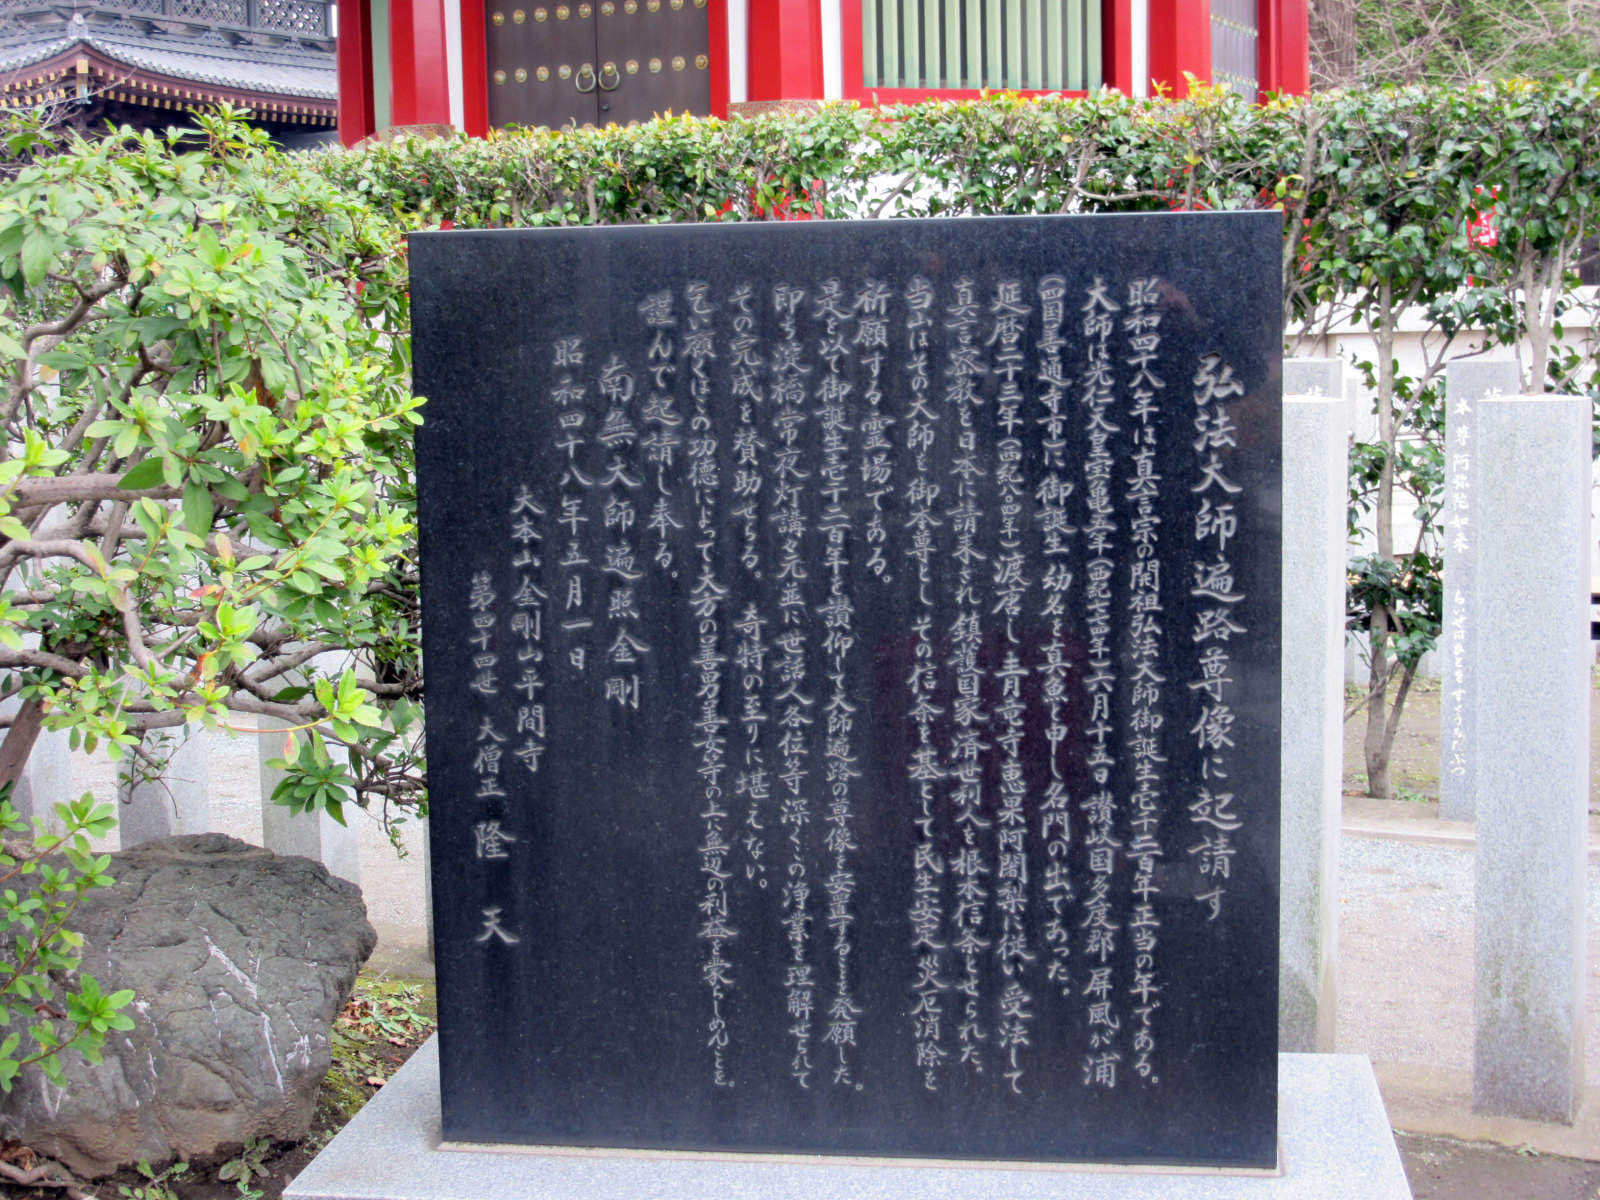 弘法大師遍路尊像に起請す
昭和四十八年は真言宗の開祖弘法大師御誕生壱千二百年正当の年である。
大師は光仁天皇宝亀五年(西紀七七四年)六月十五日讃岐国多度郡屏風が浦
(四国善通寺市)に御誕生幼名を真魚と申し名門の出であった。
延暦二十三年(西紀八〇四年)渡唐し青竜寺恵果阿闍梨に従い受法して
真言密教を日本に請来され鎮護国家済世利人を根本信条とせられた。
当山はその大師を御本尊としその信条を基として民生安定災厄消除を
祈願する霊場である。
是を以て御誕生壱千二百年を讃仰して大師遍路の尊像を安置することを発願した。
即ち淡橋常夜灯講夕元並に世話人各位等深くこの浄業を理解せられて
その完成を賛助せらる。奇特の至りに堪えない。
乞い願くはこの功徳によって大方の善男善女等の上に無辺の利益を蒙らしめんことを。
謹んで起請し奉る。
南無大師遍照金剛
昭和四十八年五月一日
大本山金剛山平間寺
第四十四世 大僧正 隆天
本尊 阿弥陀如来